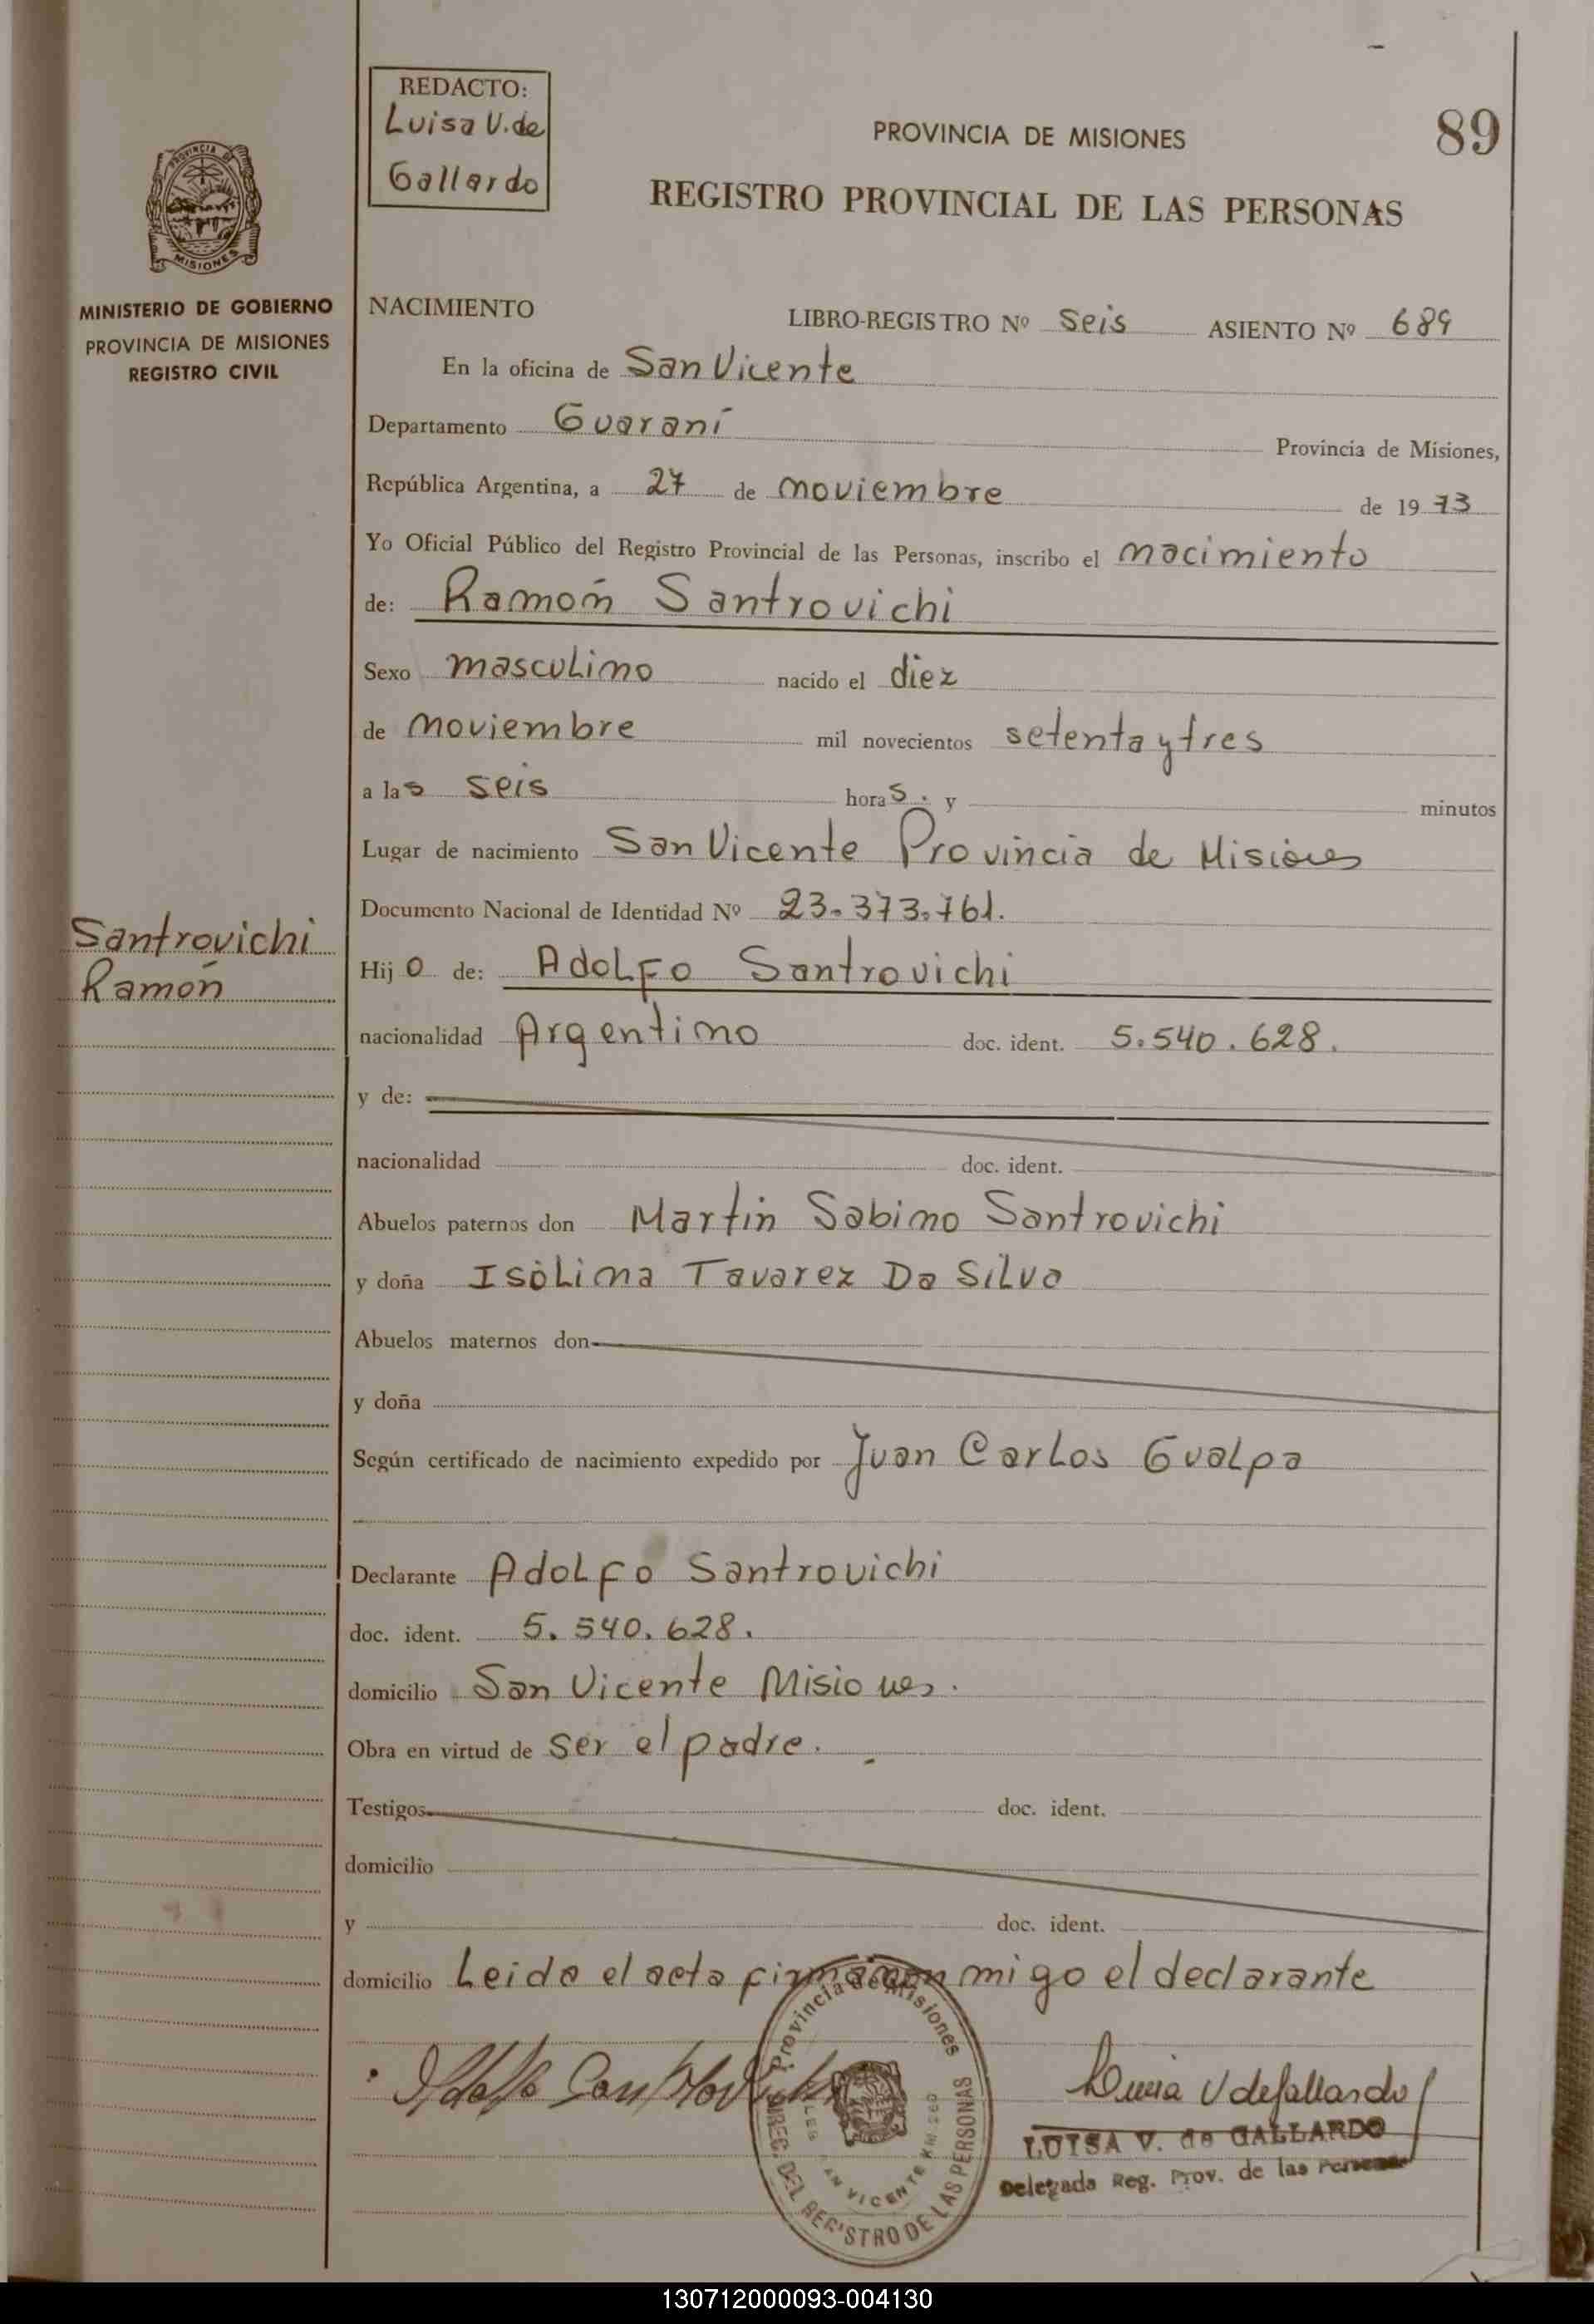 REDACTO:
Luisa V. de
Gallardo
PROVINCIA DE MISIONES
89
REGISTRO PROVINCIAL DE LAS PERSONAS
PROVINCIA DE
MISIONES
MINISTERIO DE GOBIERNO
PROVINCIA DE MISIONES
REGISTRO CIVIL
NACIMIENTO
LIBRO-REGISTRO Nº Seis ASIENTO Nº 689
En la oficina de San Vicente
Departamento Guaraní Provincia de Misiones,
República Argentina, a 27 de noviembre de 1973
Yo Oficial Público del Registro Provincial de las Personas, inscribo el nacimiento
de: Ramón Santrovichi
Sexo masculino nacido el diez
de noviembre mil novecientos setenta y tres
a las seis horas. y minutos
Lugar de nacimiento San Vicente Provincia de Misiones
Documento Nacional de Identidad Nº 23.373.761.
Santrovichi
Ramón
Hijo de: Adolfo Santrovichi
nacionalidad Argentino doc. ident. 5.540.628.
y de:
nacionalidad doc. ident.
Abuelos paternos don Martin Sabino Santrovichi
y doña Isolina Tavarez Da Silva
Abuelos maternos don
y doña
Según certificado de nacimiento expedido por Juan Carlos Gualpa
Declarante Adolfo Santrovichi
doc. ident. 5.540.628.
domicilio San Vicente Misiones.
Obra en virtud de ser el padre.
Testigos doc. ident.
domicilio
y doc. ident.
domicilio Leida el acta firma conmigo el declarante
Adolfo Santrovichi
Provincia de Misiones
DIREC. DEL REGISTRO DE LAS PERSONAS
SAN VICENTE KM. 260
Luisa V de Gallardo
LUISA V. de GALLARDO
Delegada Reg. Prov. de las Personas
130712000093-004130